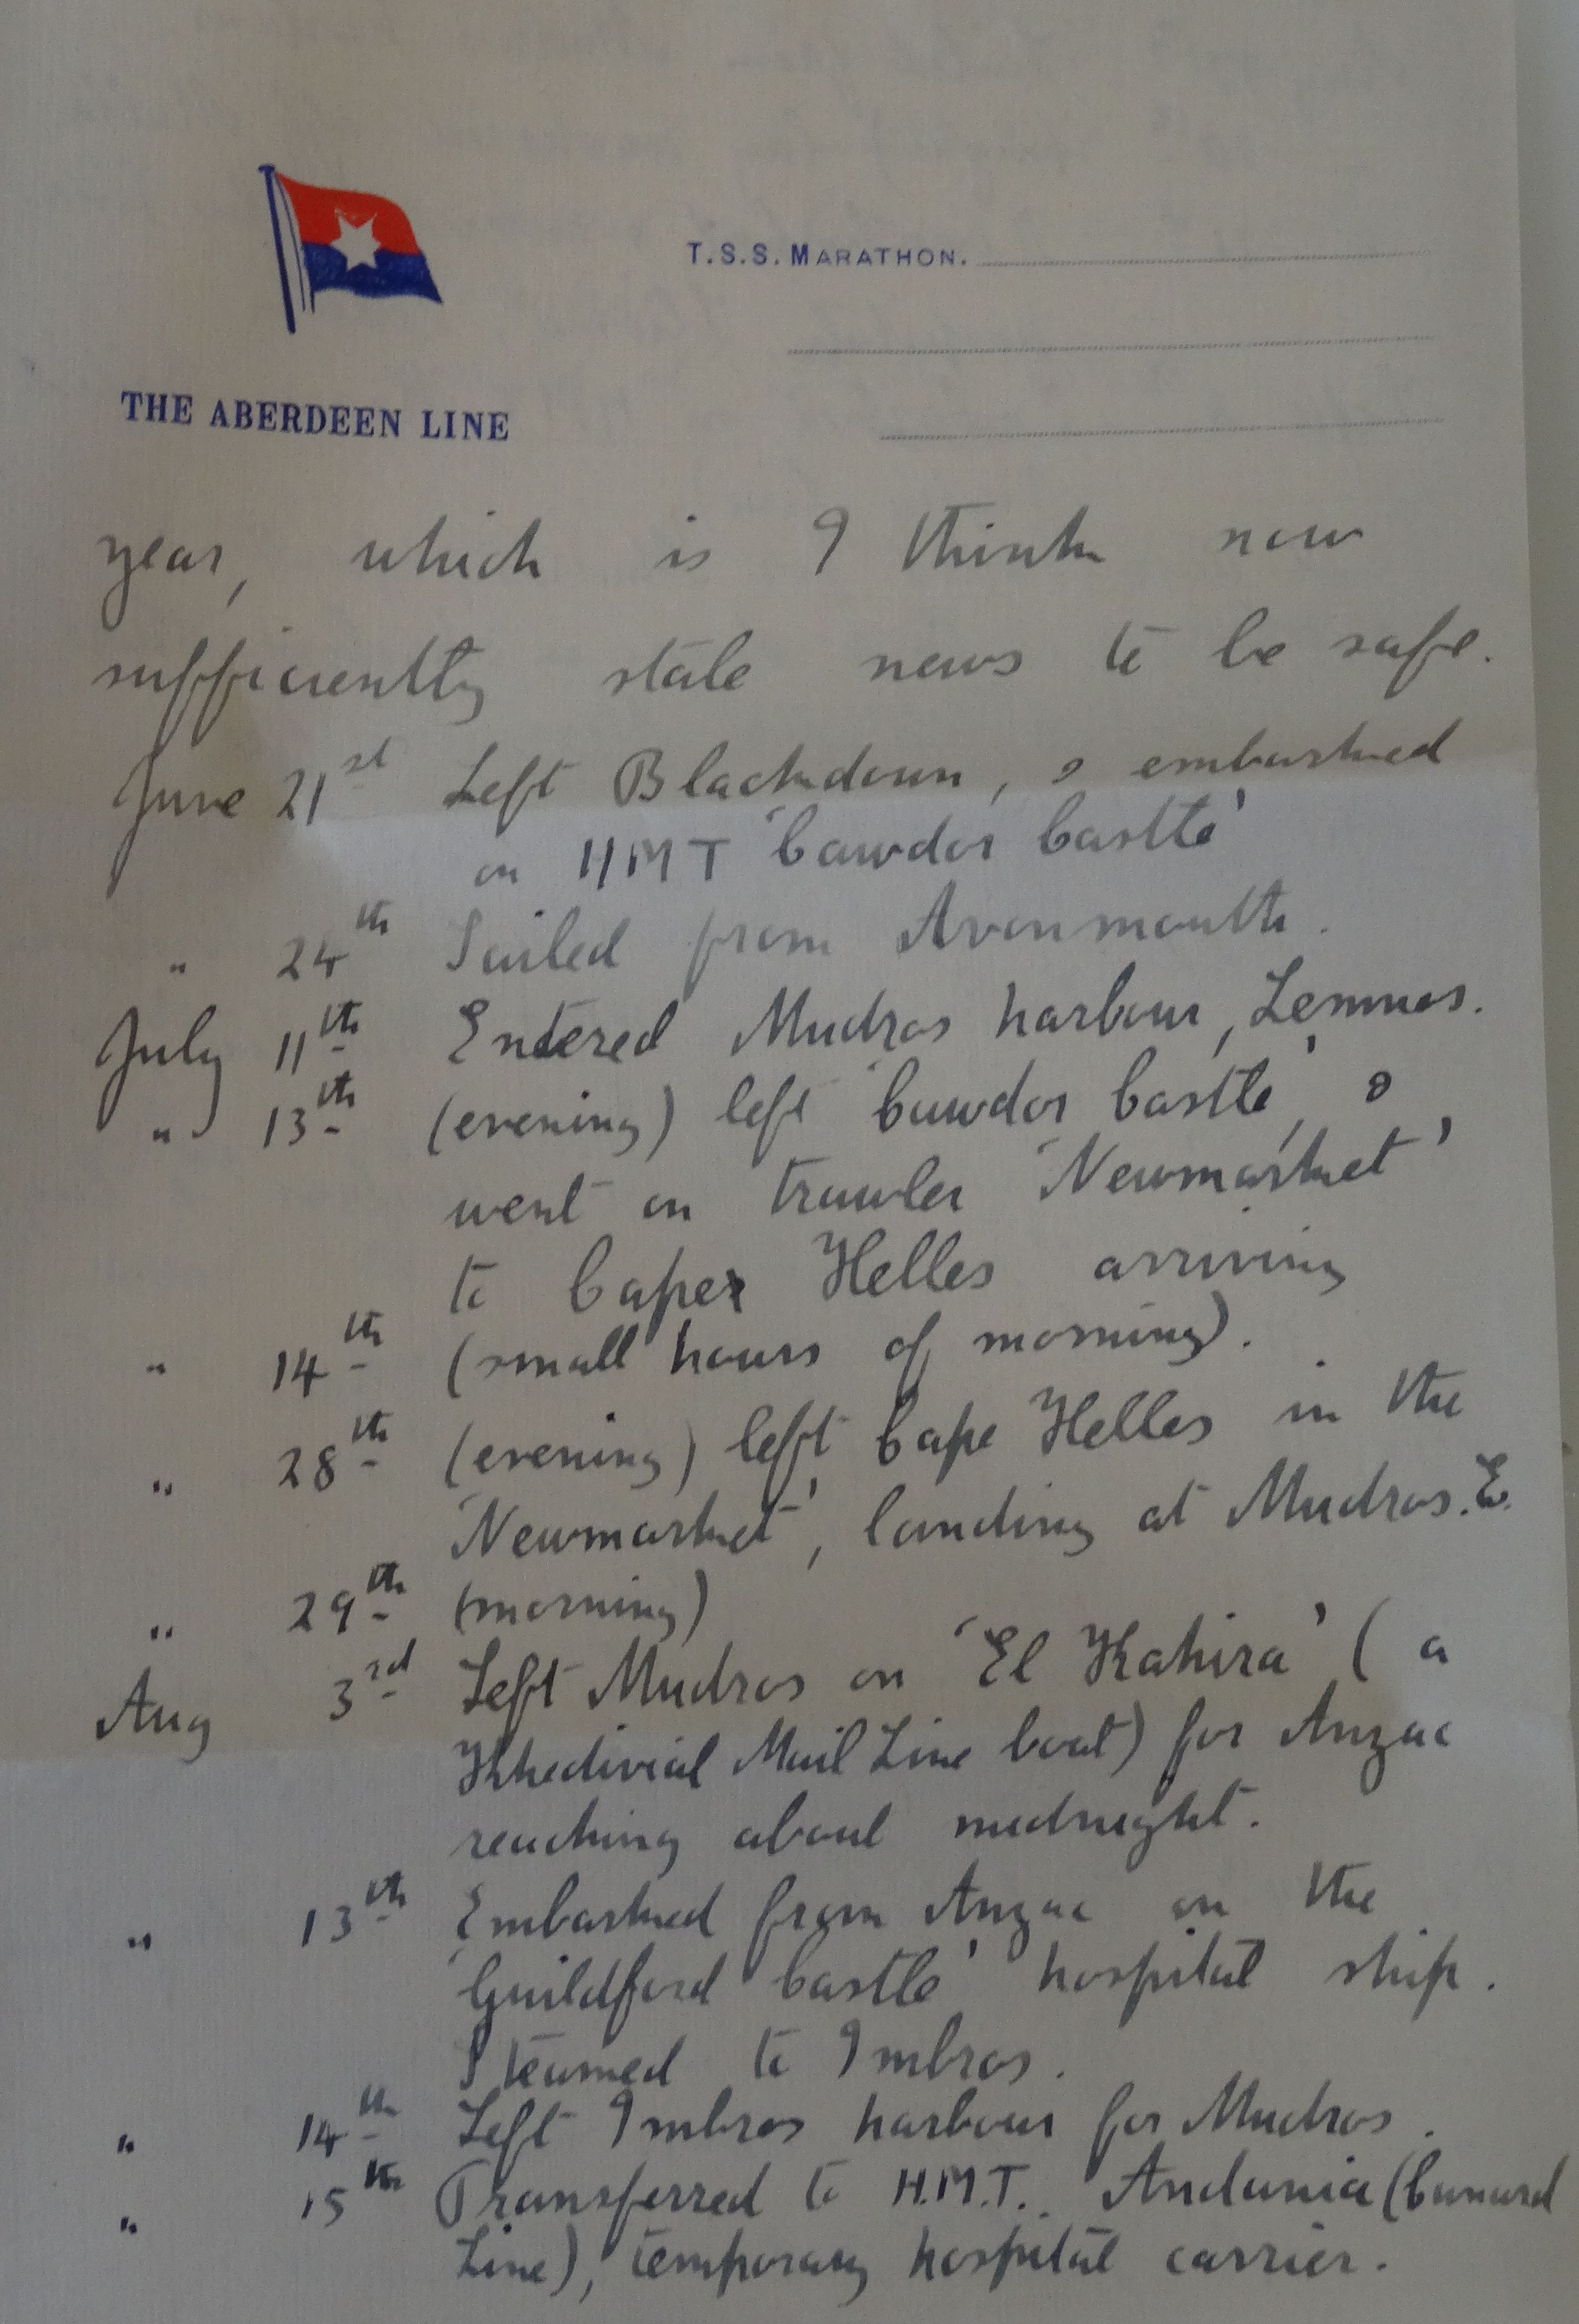 T.S.S. MARATHON.
THE ABERDEEN LINE
year, which is I think now
sufficiently stale news to be safe.
June 21st Left Blackdown, & embarked
on HMT 'Cawdor Castle'
" 24th Sailed from Avonmouth.
July 11th Entered Mudros harbour, Lemnos.
" 13th (evening) left 'Cawdor Castle', &
went on trawler 'Newmarket'
to Cape Helles arriving
" 14th (small hours of morning).
" 28th (evening) left Cape Helles in the
'Newmarket', landing at Mudros. E.
" 29th (morning)
Aug 3rd Left Mudros on 'El Kahira' (a
Khedivial Mail Line boat) for Anzac
reaching about midnight.
" 13th Embarked from Anzac on the
'Guildford Castle' hospital ship.
Steamed to Imbros.
" 14th Left Imbros harbour for Mudros.
" 15th Transferred to H.M.T. Andania (Cunard
Line), temporary hospital carrier.